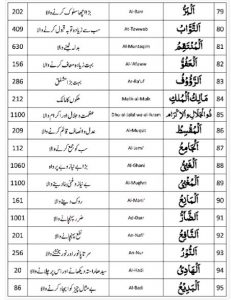 202 بڑا اچھا سلوک کرنے والا Al-Barr اَلْبَرُّ 79
409 سب سے زیادہ توبہ قبول کرنے والا At-Tawwab اَلتَّوَّابُ 80
630 بدلہ لینے والا Al-Muntaqim اَلْمُنْتَقِمُ 81
156 بہت زیادہ معاف کرنے والا Al-'Afuww اَلْعَفُوُّ 82
286 بہت بڑا مشفق Ar-Ra'uf اَلرَّؤُوْفُ 83
212 ملکوں کا مالک Malik-al-Mulk مَالِكُ الْمُلْكِ 84
1100 عظمت و جلال اور اکرام والا Dhu-al-Jalal wa-al-Ikram ذُوالْجَلَالِ وَالْاِكْرَامِ 85
209 عدل و انصاف قائم کرنے والا Al-Muqsit اَلْمُقْسِطُ 86
112 سب کو جمع کرنے والا Al-Jami' اَلْجَامِعُ 87
1060 بڑا بے نیاز و بے پرواہ Al-Ghani اَلْغَنِيُّ 88
1100 بے نیاز و غنی بنا دینے والا Al-Mughni اَلْمُغْنِيُ 89
161 روک دینے والا Al-Mani' اَلْمَانِعُ 90
1001 ضرر پہنچانے والا Ad-Dharr اَلضَّارُّ 91
201 نفع پہنچانے والا An-Nafi' اَلنَّافِعُ 92
256 سر تا پا نور اور نور بخشنے والا An-Nur اَلنُّوْرُ 93
20 سیدھا راستہ دکھانے اور اس پر چلانے والا Al-Hadi اَلْهَادِيْ 94
86 بے مثال چیز کو ایجاد کرنے والا Al-Badi اَلْبَدِيْعُ 95